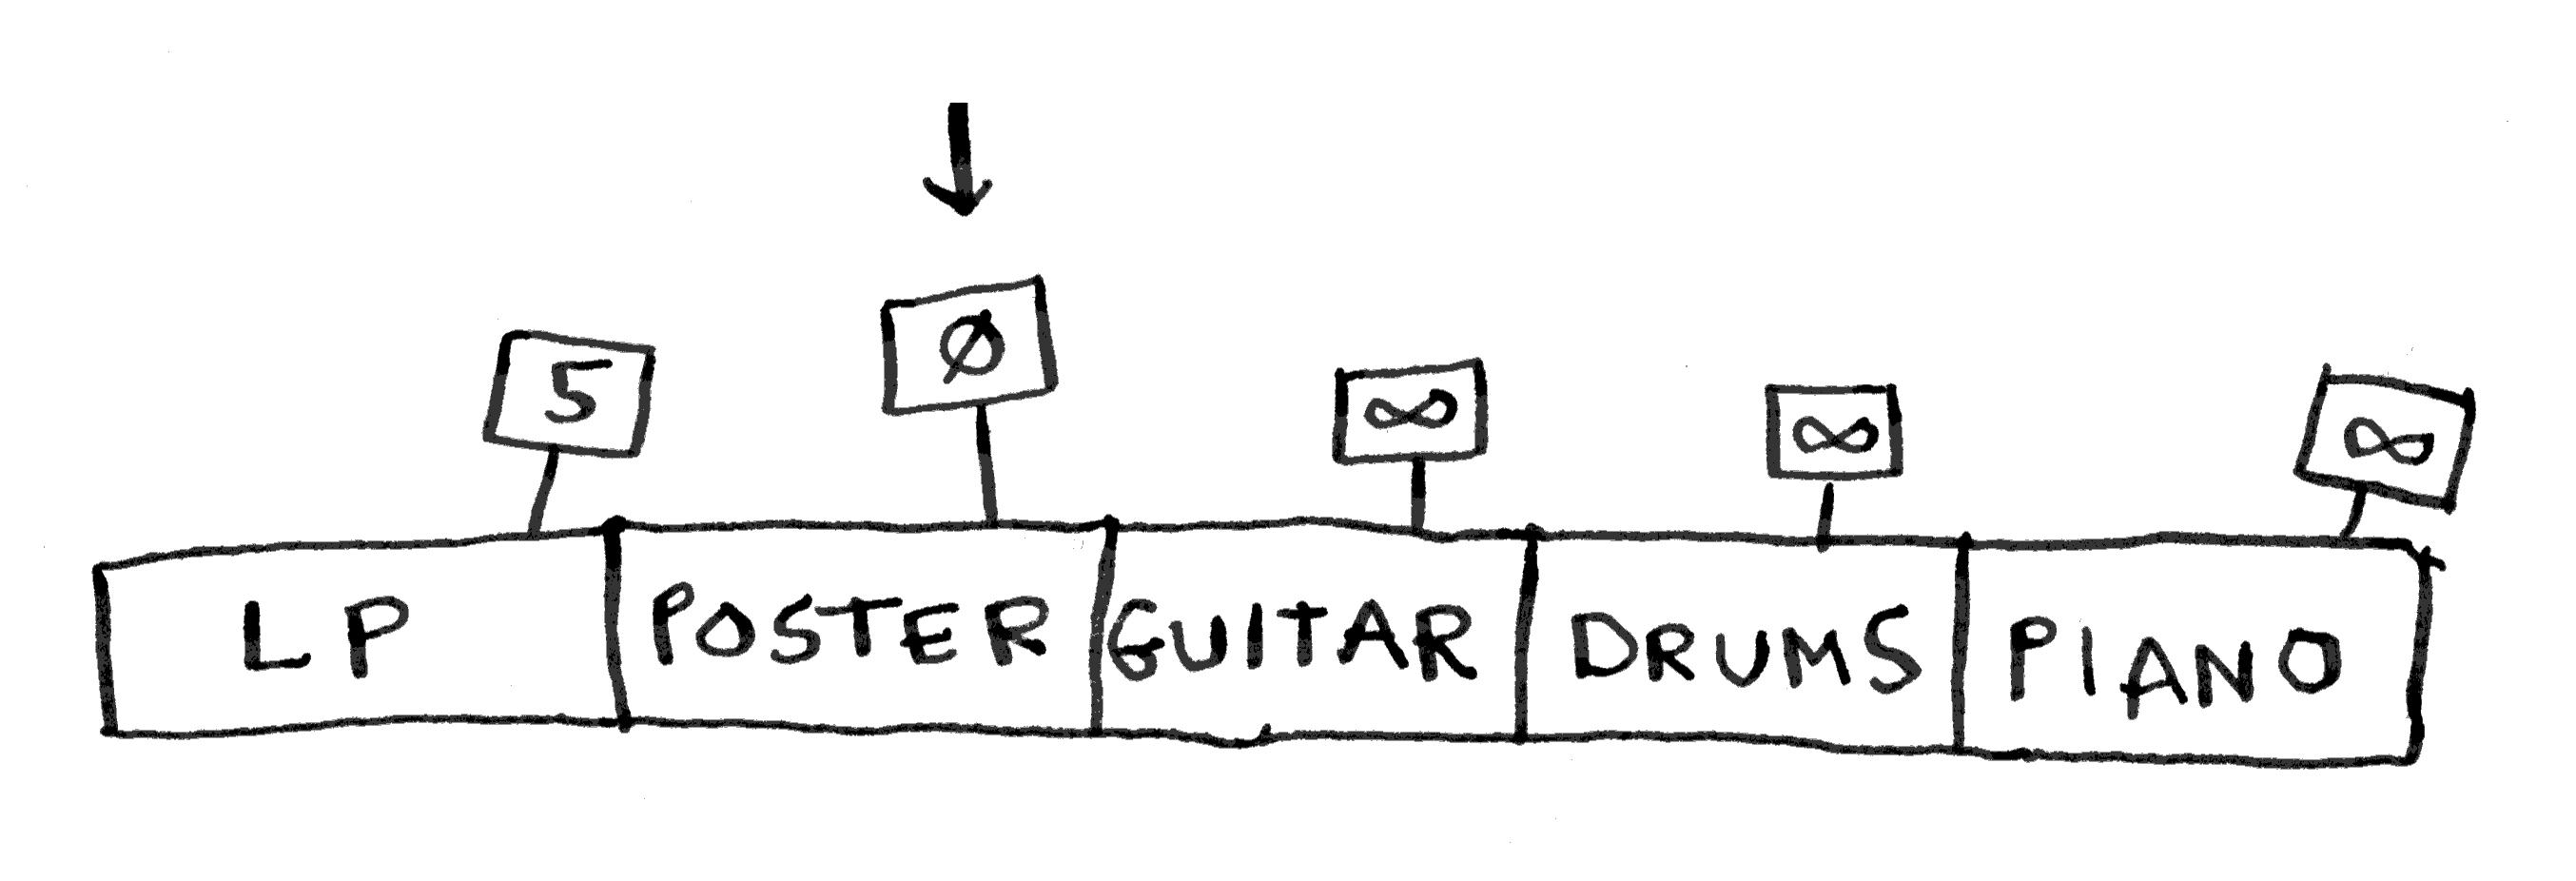 5 Ø ∞ ∞ ∞
LP POSTER GUITAR DRUMS PIANO